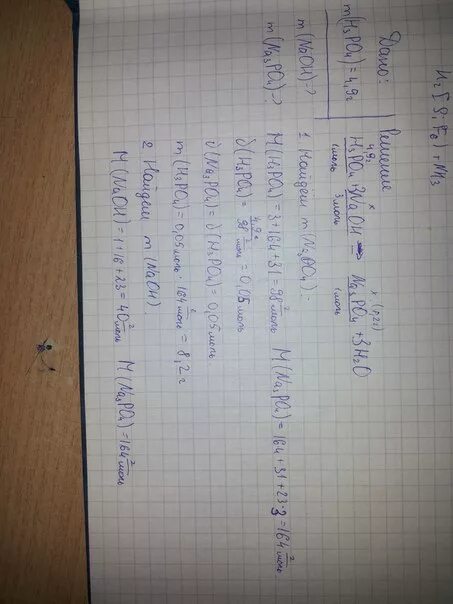 H₂[SiF₆] + NH₃
Дано:
m(H₃PO₄) = 4,9г
m(NaOH) - ?
m(Na₃PO₄) - ?
Решение
4,9г x y (8,2г)
H₃PO₄ + 3NaOH → Na₃PO₄ + 3H₂O
1моль 3моль 1моль
1. Найдём m(Na₃PO₄):
M(H₃PO₄) = 3 + 16·4 + 31 = 98 г/моль M(Na₃PO₄) = 16·4 + 31 + 23·3 = 164 г/моль
∂(H₃PO₄) = 4,9г / 98 г/моль = 0,05 моль
∂(Na₃PO₄) = ∂(H₃PO₄) = 0,05 моль
m(H₃PO₄) = 0,05 моль · 164 г/моль = 8,2 г
2 Найдём m(NaOH)
M(NaOH) = 1 + 16 + 23 = 40 г/моль M(Na₃PO₄) = 164 г/моль